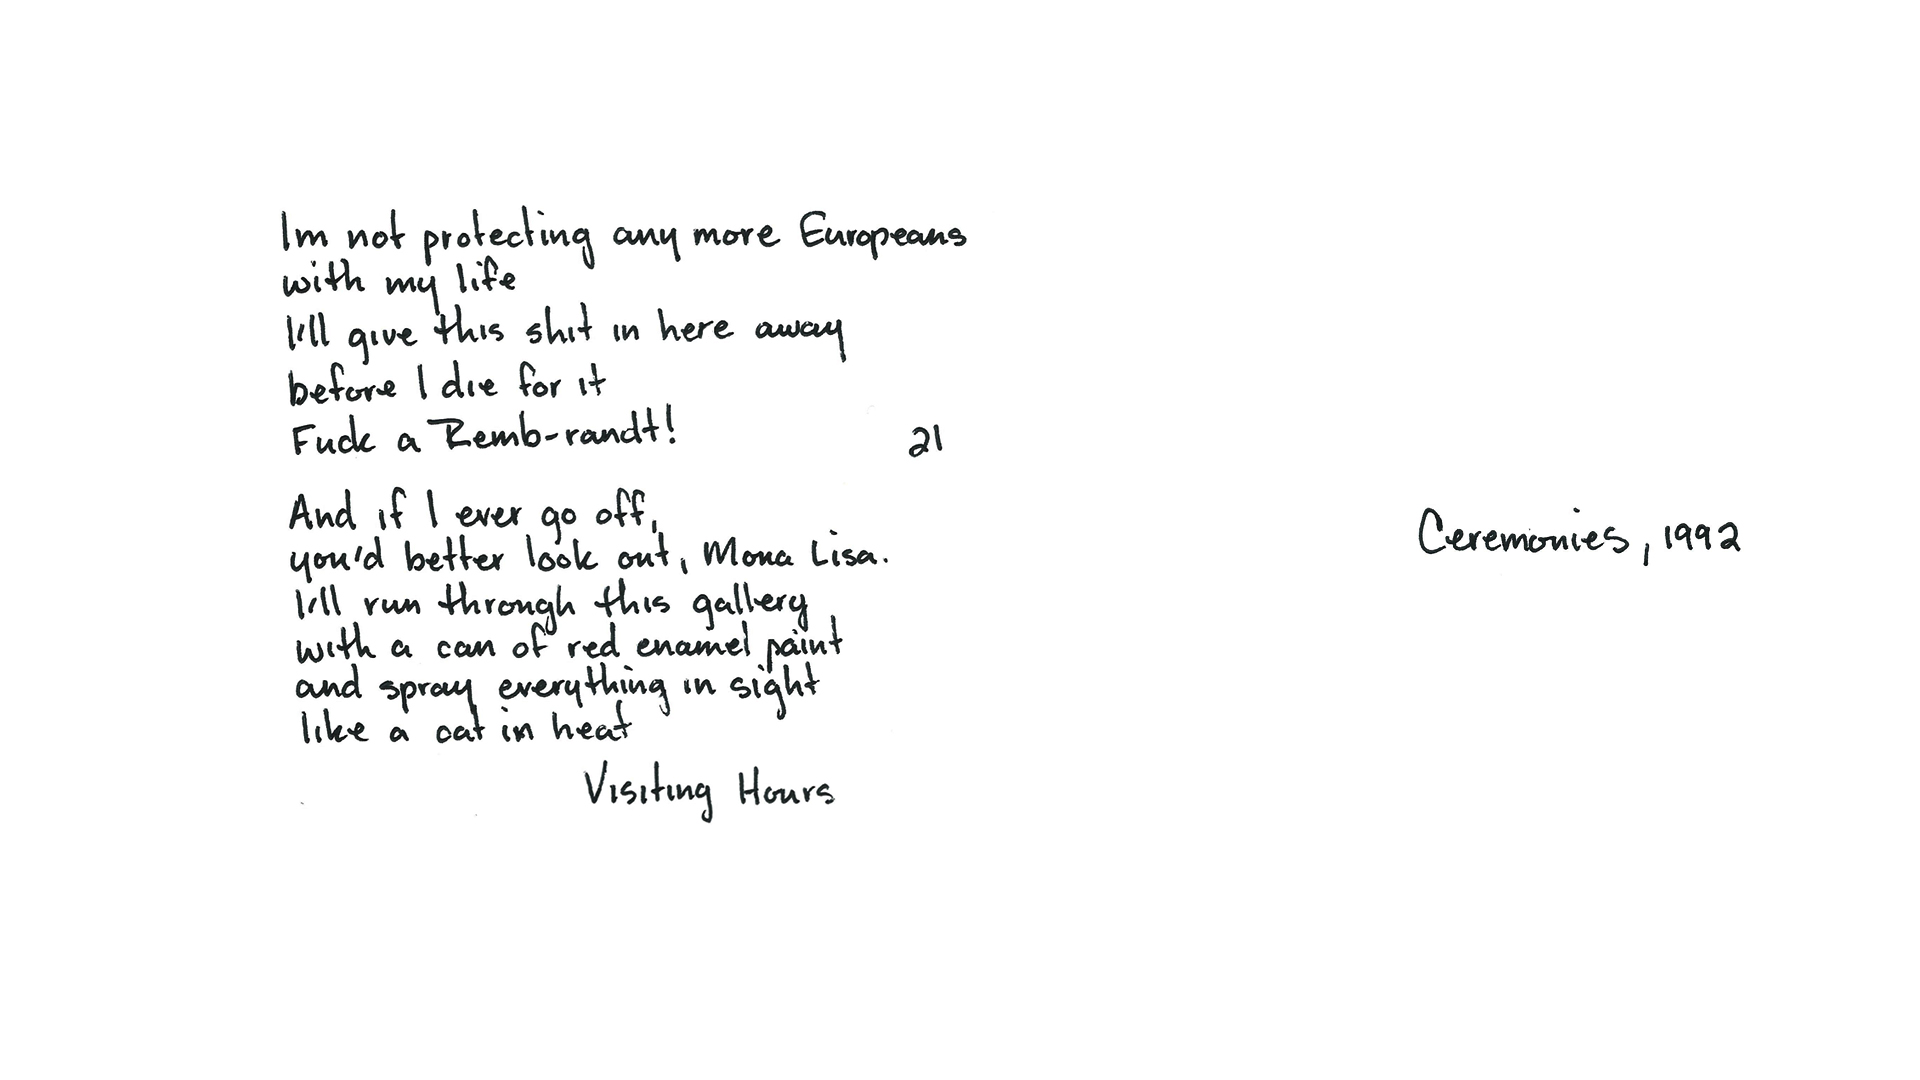 Im not protecting any more Europeans
with my life
I'll give this shit in here away
before I die for it
Fuck a Remb-randt!
21
And if I ever go off,
you'd better look out, Mona Lisa.
I'll run through this gallery
with a can of red enamel paint
and spray everything in sight
like a cat in heat
Visiting Hours
Ceremonies, 1992